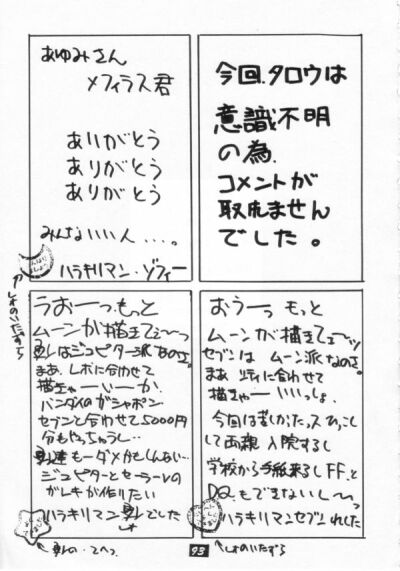 あゆみさん
メフィラス君
ありがとう
ありがとう
ありがとう
みんないい人...。
ハラキリマン・ゾフィー
今回.タロウは
意識不明
の為.
コメントが
取れません
でした。
うおーっもっと
ムーンが描きてェ〜っ
はジュピター派なのさ。
まあ、レボに合わせて
描きゃーいーか、
バンダイのガシャポン
セブンと合わせて5000円
分もやっちゃうし‥
達もーダメかもしんない…
ジュピターとセーラーVの
ガレキが作りたい
ハラキリマン でした
おうーっ もっと
ムーンが描きてェ〜ッ
セブンは ムーン派なのさ。
まあ に合わせて
描きゃー いいっしょ、
今回は ひっこ
して両親入院するし
学校から手紙来るしFF.と
DQ.もできないし〜っ
ハラキリマンセブン でした
93
しょのいたずら